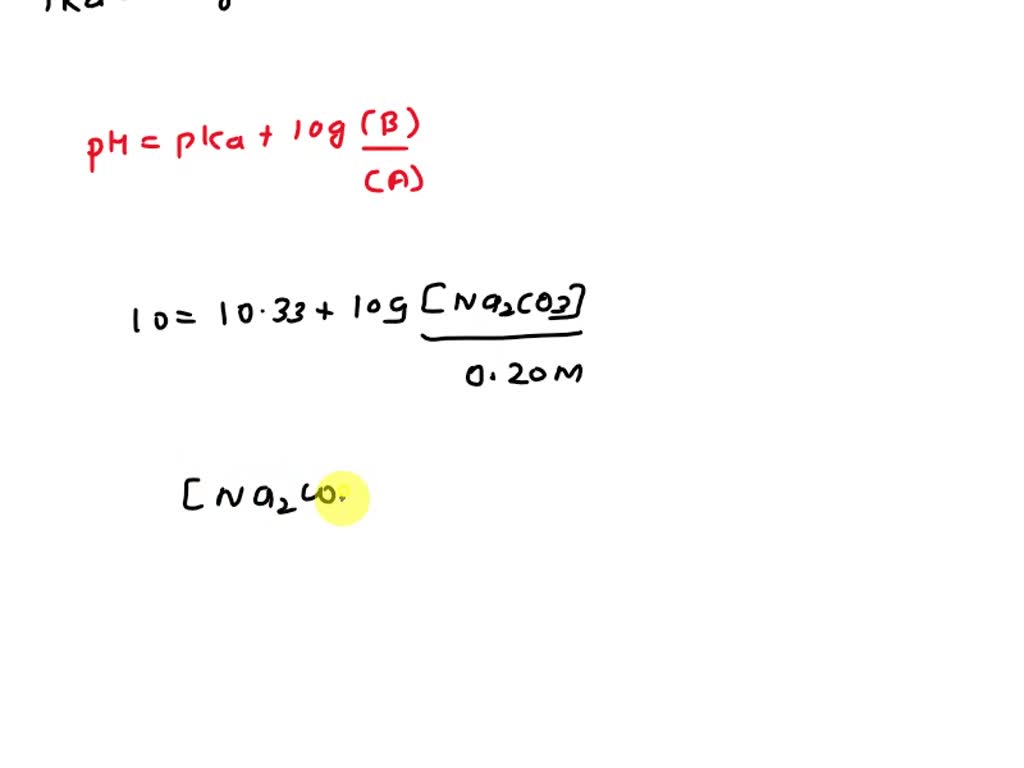 pH = pka + log (B)
(A)
10 = 10.33 + log [Na₂CO3]
0.20M
[Na₂CO